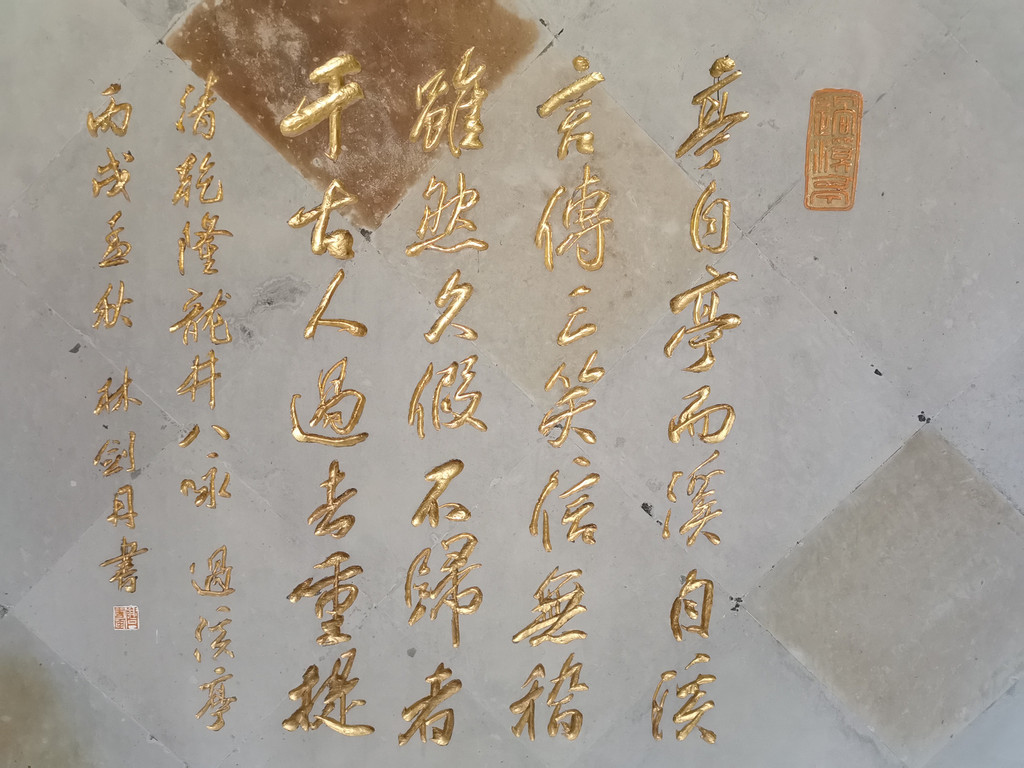 亭自亭而溪自溪
言傳三笑信無稽
雖然久假不歸者
千古人過去重提
清乾隆龍井八詠 過溪亭
丙戌孟秋 林劍丹書